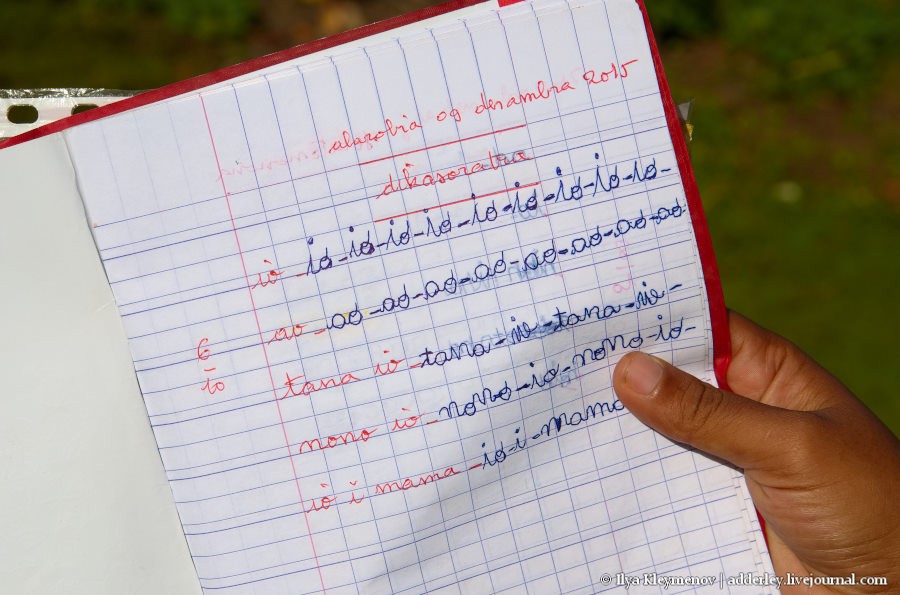 alarobia 09 desambra 2015
dikasoratra
iò - iò - iò - iò - iò - iò - iò - iò - iò - iò -
ao - ao - ao - ao - ao - ao - ao - ao - ao
6
10
tana iò - tana - iò - tana - iò -
nono iò - nono - io - nono - io -
iò i mama - iò - i - mama
© Ilya Kleymenov | adderley.livejournal.com